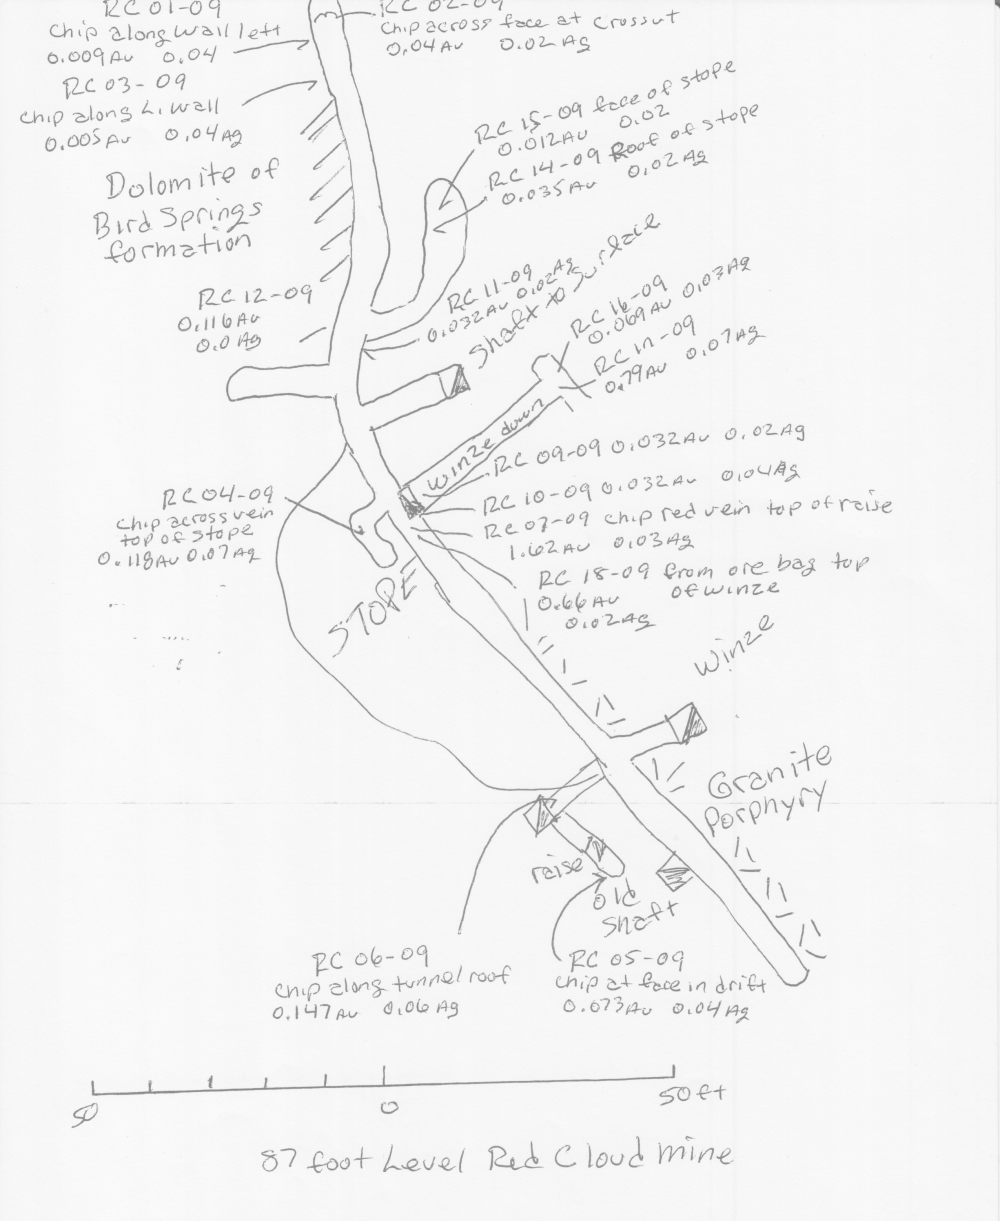 RC 01-09
Chip along wall left
0.009Au 0.04
RC 02-09
Chip across face at Crosscut
0.04Au 0.02 Ag
RC 03-09
chip along L. wall
0.005Au 0.04Ag
RC 15-09 face of stope
0.012Au 0.02
RC 14-09 Roof of stope
0.035Au 0.02Ag
Dolomite of
Bird Springs
formation
RC 12-09
0.116Au
0.0 Ag
RC 11-09
0.032Au 0.02Ag
Shaft to Surface
RC 16-09
0.069Au 0.03Ag
RC 17-09
0.79Au 0.07Ag
winze down
RC 09-09 0.032Au 0.02Ag
RC 10-09 0.032Au 0.04Ag
RC 07-09 chip red vein top of raise
1.62Au 0.03Ag
RC 18-09 from ore bag top
of winze
0.66Au
0.02Ag
RC 04-09
Chip across vein
top of stope
0.118Au 0.07Ag
STOPE
Winze
Granite
Porphyry
raise
old
shaft
RC 06-09
Chip along tunnel roof
0.147Au 0.06Ag
RC 05-09
Chip at face in drift
0.073Au 0.04Ag
50 0 50ft
87 foot Level Red Cloud mine